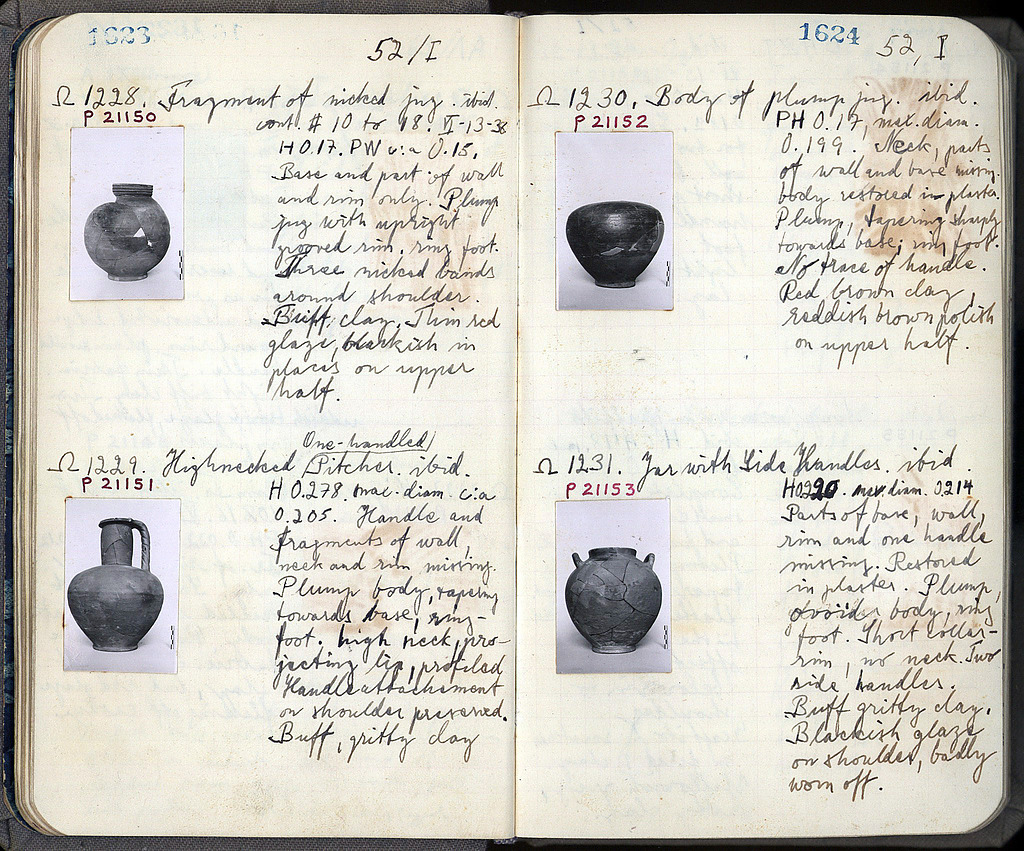 1623
52/I
Ω 1228. Fragment of nicked jug. ibid.
P 21150
cont. # 10 to 18. VI-13-38
H 0.17. PW c:a 0.15.
Base and part of wall
and rim only. Plump
jug with upright
grooved rim. ring foot.
Three nicked bands
around shoulder.
Buff clay. Thin red
glaze, blackish in
places on upper
half.
One-handled
Ω 1229. Highnecked Pitcher. ibid.
P 21151
H 0.278. max. diam. c:a
0.205. Handle and
fragments of wall,
neck and rim missing.
Plump body, tapering
towards base, ring-
foot. high neck, pro-
jecting lip, profiled.
Handle attachement
on shoulder preserved.
Buff, gritty clay
1624
52, I
Ω 1230. Body of plump jug. ibid.
P 21152
PH 0.17, max. diam.
0.199. Neck, parts
of wall and base missing.
body restored in plaster.
Plump, tapering sharply
towards base; ring foot.
No trace of handle.
Red brown clay,
reddish brown polish
on upper half.
Ω 1231. Jar with Side Handles. ibid.
P 21153
H 0.220. max. diam. 0.214
Parts of base, wall,
rim and one handle
missing. Restored
in plaster. Plump,
ovoid body, ring
foot. Short collar-
rim, no neck. Two
side handles.
Buff gritty clay.
Blackish glaze
on shoulder, badly
worn off.